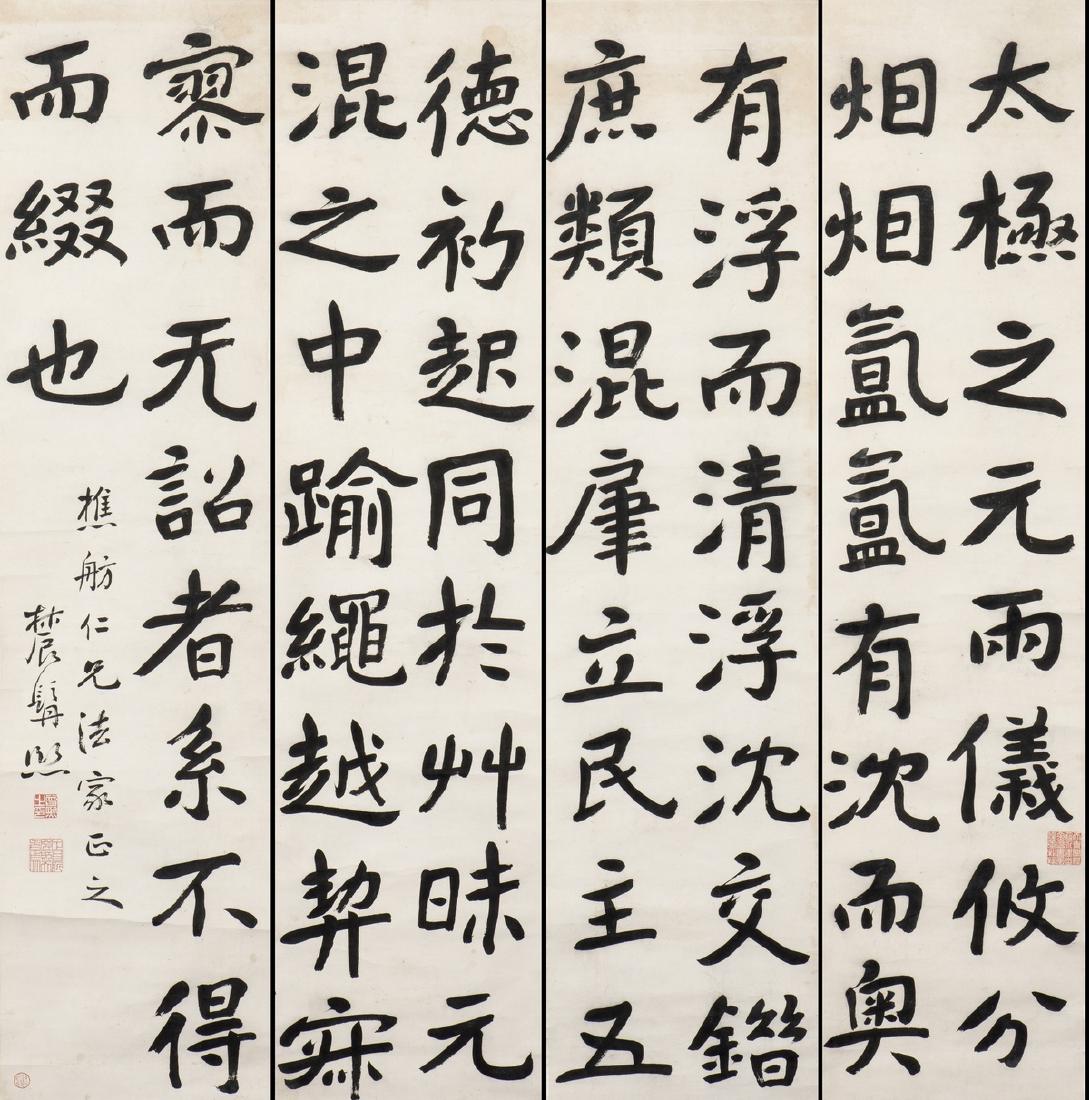 太極之元兩儀攸分
烟烟氳氳有沈而奧
有浮而清浮沈交錯
庶類混肇立民主五
德初起同於艸昧元
混之中踰繩越契寂
寥而无詔者系不得
而綴也
樵舫仁兄法家正之
農髯熙